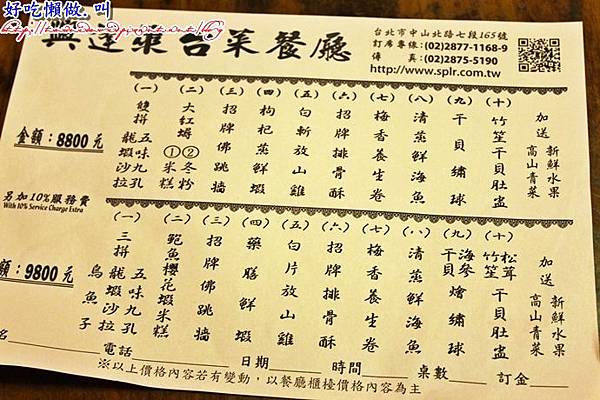 好吃懶做. 叫
興達來台菜餐廳
台北市中山北路七段165號
訂席專線：(02)2877-1168-9
傳　　真：(02)2875-5190
http://www.splr.com.tw
金額：8800元
(一) 雙拼 龍蝦沙拉 五味九孔
(二) 大紅蟳 ①米糕 ②冬粉
(三) 招牌佛跳牆
(四) 枸杞鮮蝦
(五) 白斬放山雞
(六) 招牌排骨酥
(七) 梅香養生卷
(八) 清蒸鮮海魚
(九) 干貝繡球
(十) 竹笙干貝肚盅
加送 高山青菜 新鮮水果
另加10%服務費
With 10% Service Charge Extra
額：9800元
(一) 三拼 烏魚子 龍蝦沙拉 五味九孔
(二) 鮑魚櫻花蝦米糕
(三) 招牌佛跳牆
(四) 藥膳鮮蝦
(五) 白片放山雞
(六) 招牌排骨酥
(七) 梅香養生卷
(八) 清蒸鮮海魚
(九) 干貝海參燴繡球
(十) 竹笙松茸干貝肚盅
加送 高山青菜 新鮮水果
名
電話
日期
時間
桌數
訂金
※以上價格內容若有變動，以餐廳櫃檯價格內容為主